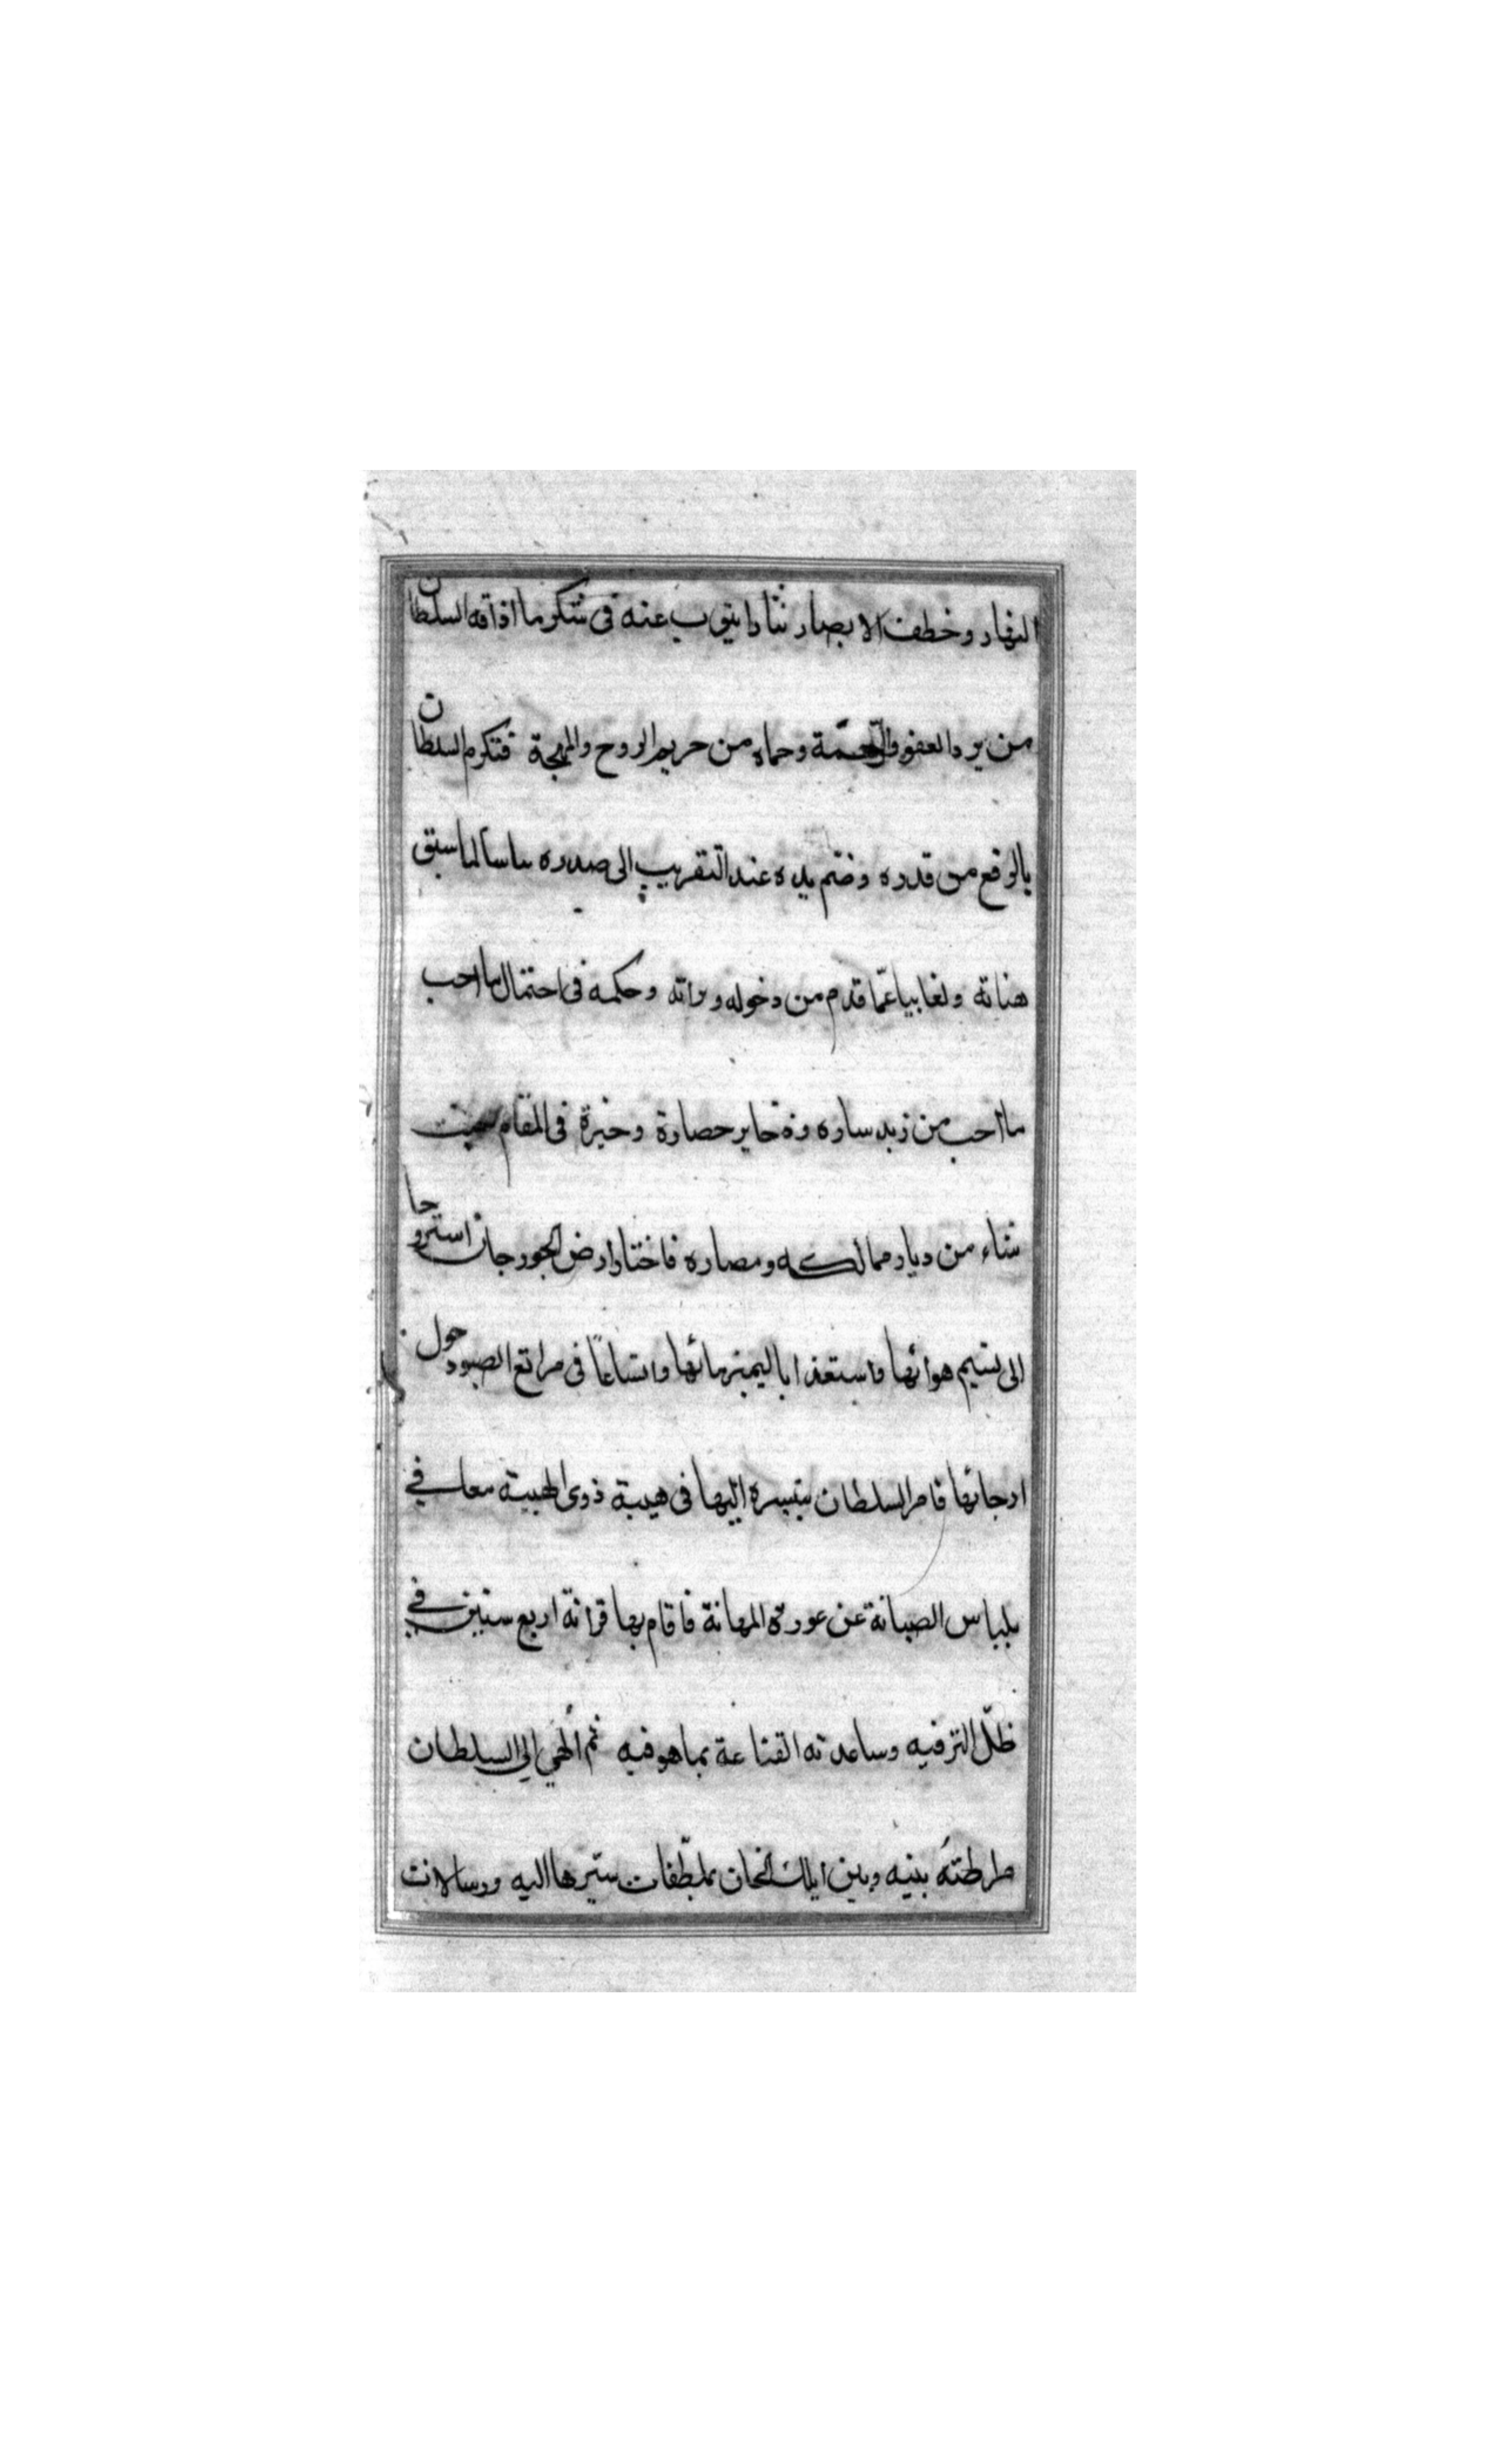 النهار وخطفت الابصار نثارا ينوب عنه فى شكر ما اذاقه السلطان
من برد العفو والرحمة وحماه من حريم الروح والمهجة فتكرم السلطان
بالرفع من قدره وضم يده عند التقريب الى صدره ناسيا لما سبق
هناته ولغابيا عمّا قدم من دخوله وتراته وحكمه فى احتمال ما احب
ما احب من زبد ساره وذخاير حصاره وخيرة فى المقام حيث
شاء من ديار ممالكه ومصاره فاختار ارض الجورجان استرواحا
الى نسيم هوائها واستعذابا لنمير مائها واتساعا فى مراتع الصيود حول
ارجائها فامر السلطان بتسيره اليها فى هيبة ذوى الهيبة معا فى
بلباس الصيانة عن عورة المهانة فاقام بها قرابة اربع سنين في
ظلّ الترفيه وساعدته القناعة بما هو فيه ثم انهى الى السلطان
بينه وبين ايلك الخان بملطّفات سيرها اليه ورسالات